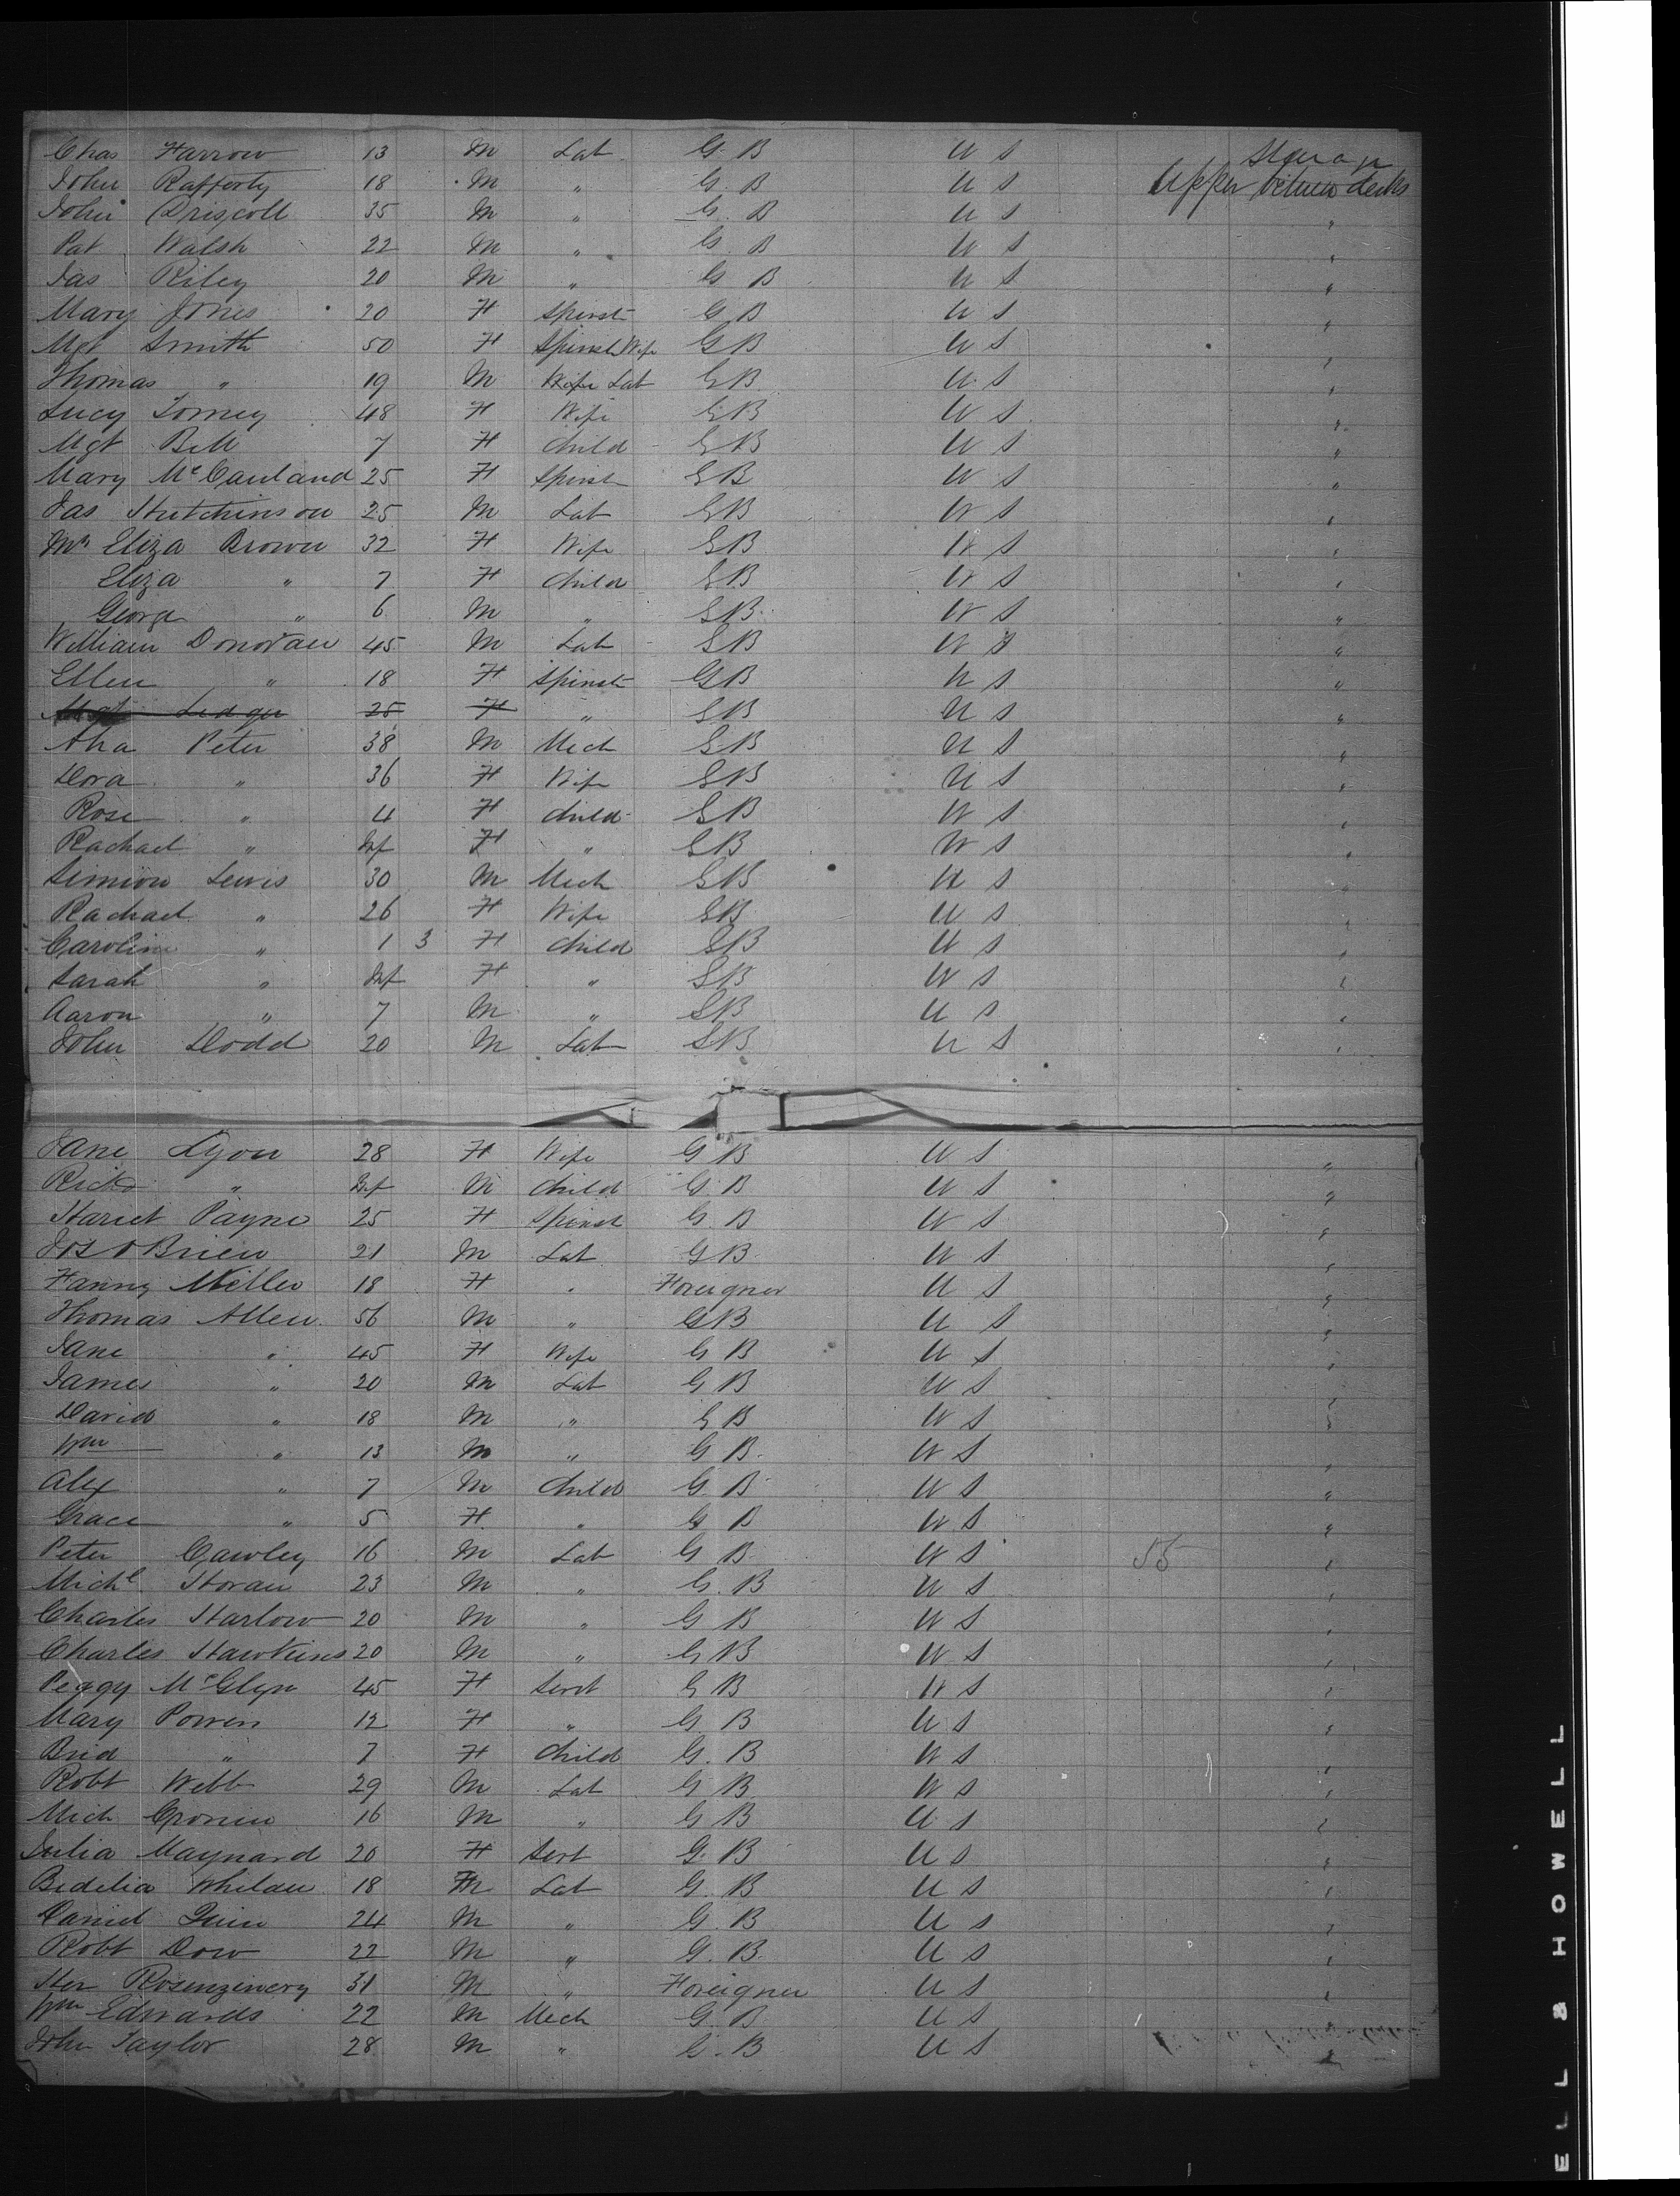 Chas Harrow 13 M Lab G. B U S Steerage
John Rafferty 18 M " G. B U S Upper between decks
John Driscoll 35 M " G. B U S "
Pat Walsh 22 M " G. B U S "
Jas Riley 20 M " G B U S "
Mary Jones 20 F Spinst G B U S "
Mgt Smith 50 F Spinst Wife G B U S "
Thomas " 19 M Wife Lab G B U S "
Lucy Tormey 48 F Wife G B U S "
Mgt Bell 7 F Child G B U S "
Mary McCauland 25 F Spinst G B U S "
Jas Hutchinson 25 M Lab G B U S "
Mrs Eliza Brown 32 F Wife G B U S "
Eliza " 7 F Child G B U S "
George " 6 M " G B U S "
William Donovan 45 M Lab G B U S "
Ellen " 18 F Spinst G B U S "
Mgt Ledger 25 F " G B U S "
Aha Peter 38 M Mech G B U S "
Dora " 36 F Wife G B U S "
Rose " 4 F Child G B U S "
Rachael " Inf F " G B U S "
Simion Lewis 30 M Mech G B U S "
Rachael " 26 F Wife G B U S "
Caroline " 1 3 F Child G B U S "
Sarah " Inf F " G B U S "
Aaron " 7 M " G B U S "
John Dodd 20 M Lab G B U S "
Jane Lyon 28 F Wife G B U S "
Richd " Inf M Child G. B U S "
Hariet Payne 25 F Spinst G. B U S "
Jos OBrien 21 M Lab G B U S "
Fanny Miller 18 F " Foreigner U S "
Thomas Allen 56 M " G B U S "
Jane " 45 F Wife G B U S "
James " 20 M Lab G B U S "
David " 18 M " G B U S "
Wm " 13 M " G B U S "
Alex " 7 M Child G. B U S "
Grace " 5 F " G B U S "
Peter Cawley 16 M Lab G B U S "
Michl Horan 23 M " G. B U S "
Charles Harlow 20 M " G B U S "
Charles Hawkins 20 M " G B U S "
Peggy McGlyn 45 F Servt G B U S "
Mary Power 12 F " G. B U S "
Brid " 7 F Child G. B U S "
Robt Webb 29 M Lab G B U S "
Mich Cronin 16 M " G B U S "
Julia Maynard 20 F Servt G. B U S "
Bedelia Whelan 18 F Lab G. B U S "
Daniel Quin 24 M " G. B U S "
Robt Dow 22 M " G. B U S "
Her 31 M " Foreigner U S "
Wm Edwards 22 M Mech G. B U S "
John Taylor 28 M " G. B U S "
ELL & HOWELL